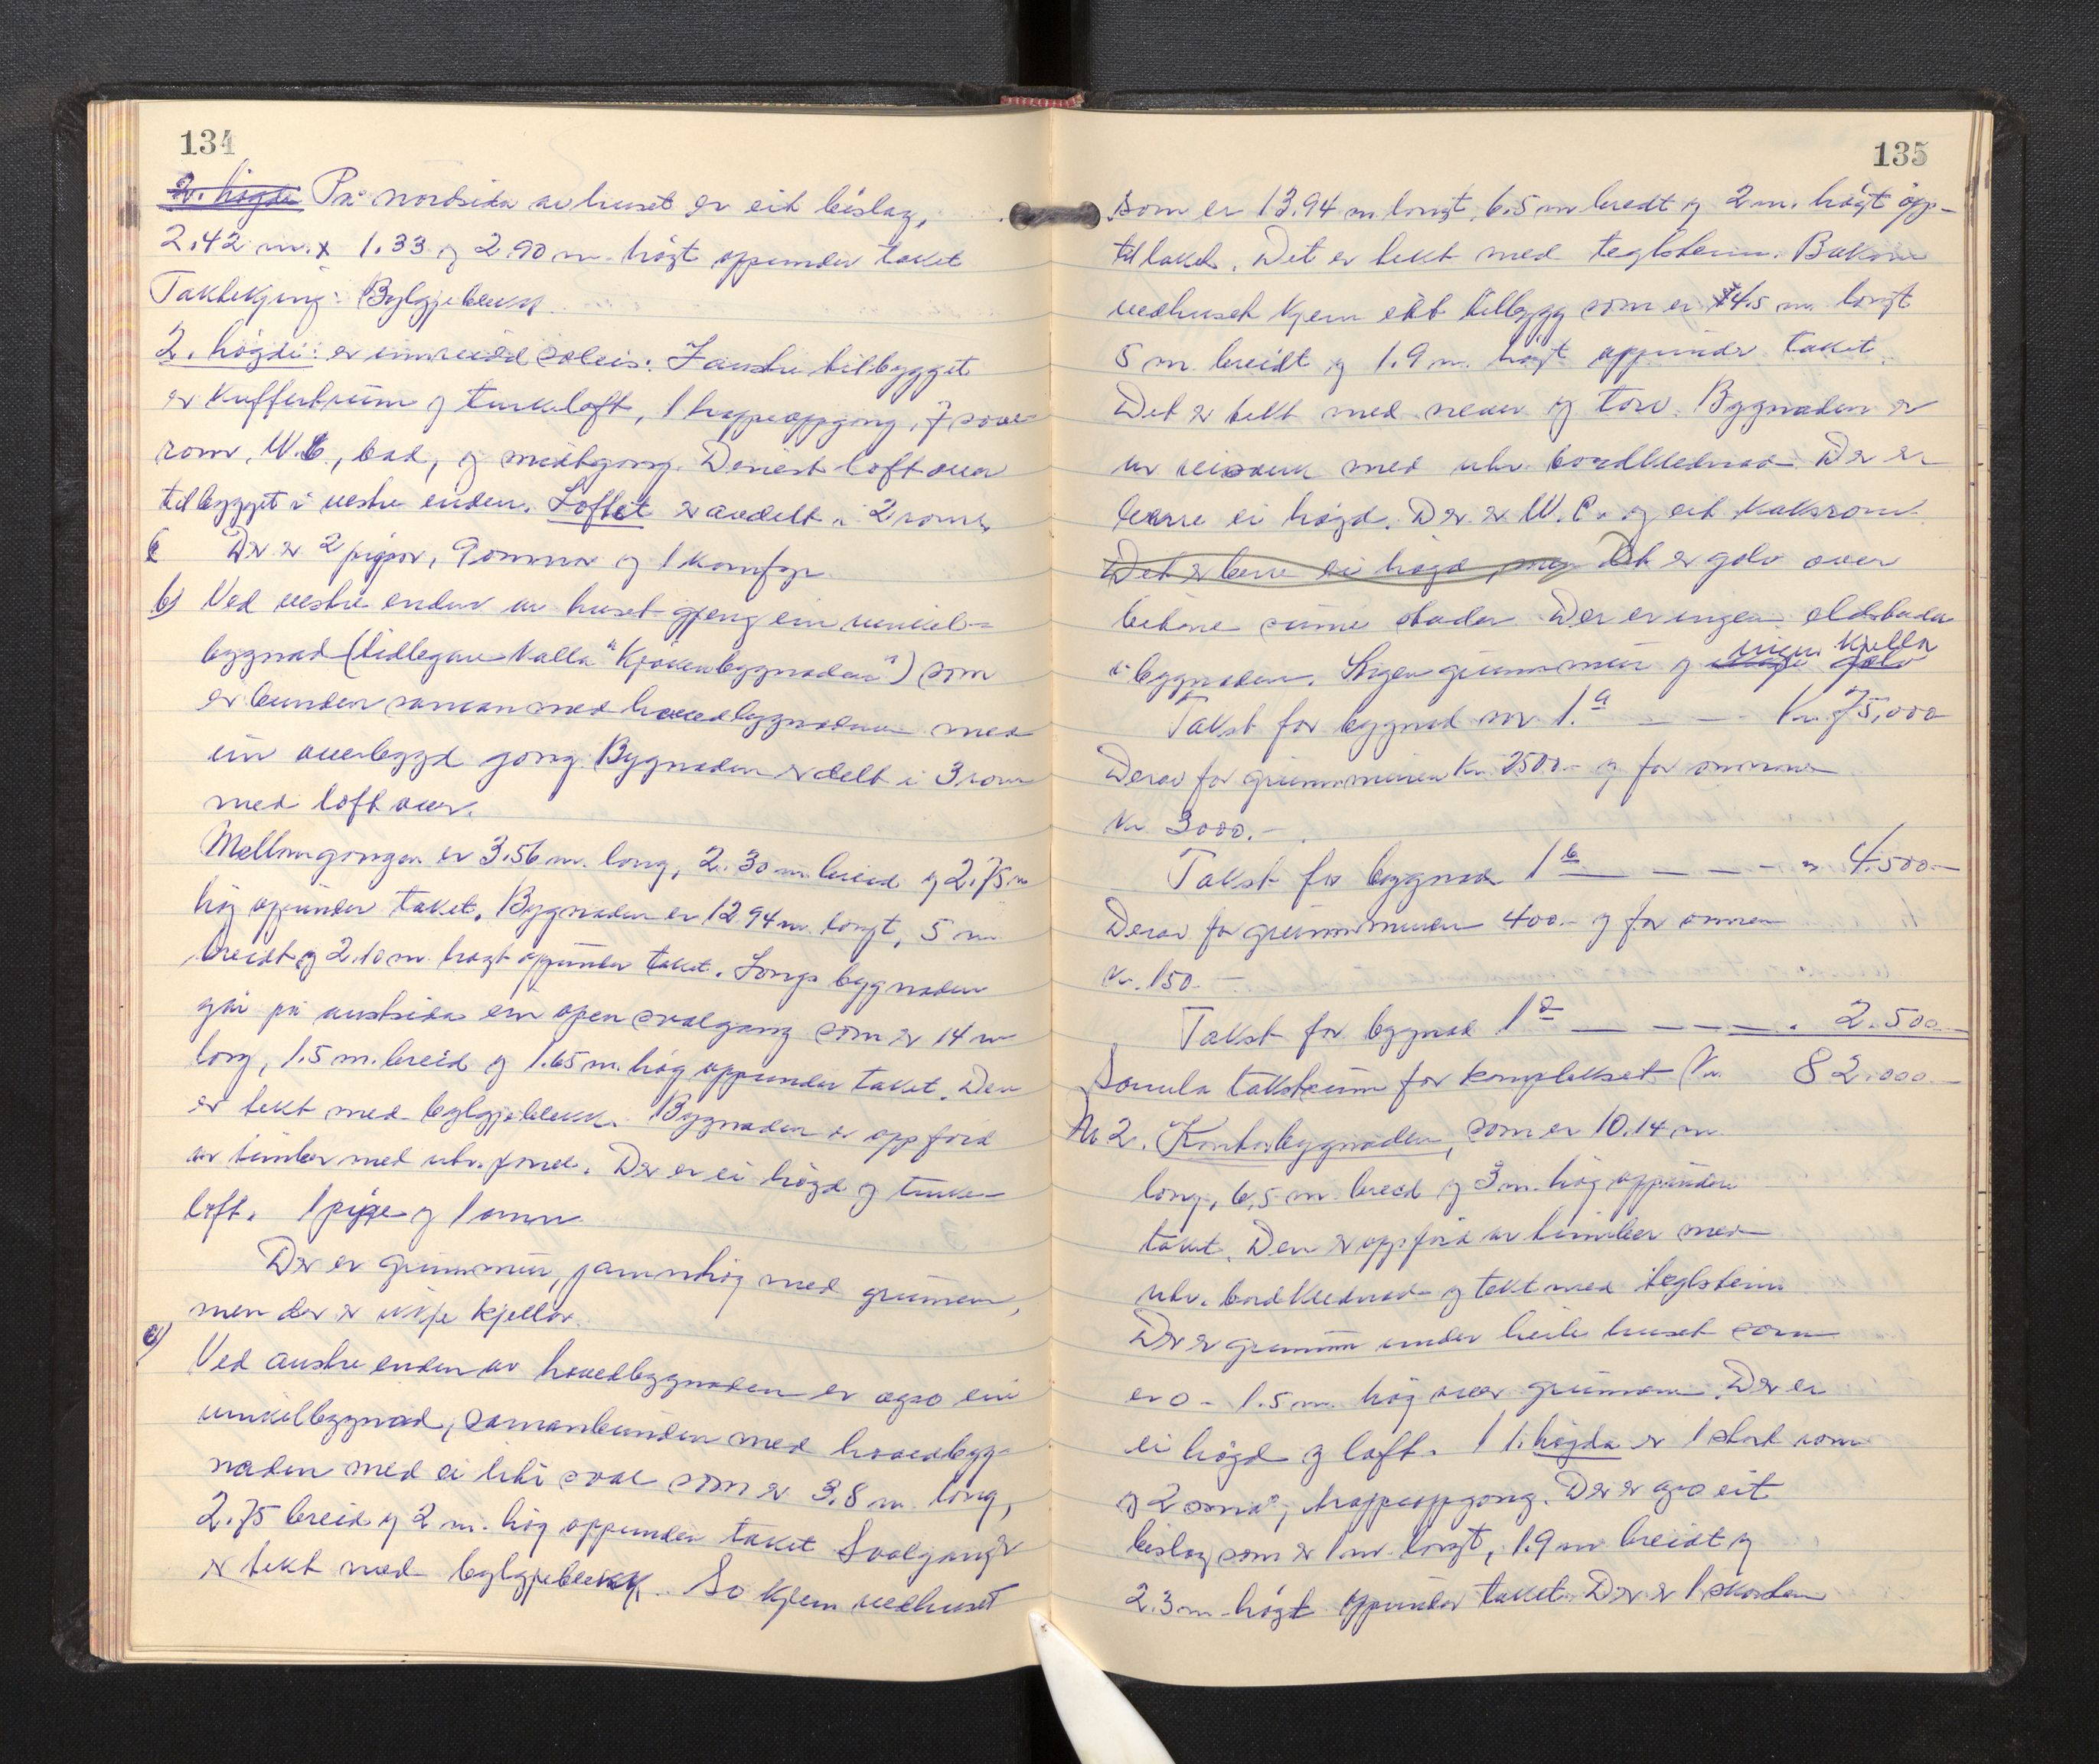 134
2. högde På nordsida av huset er eit bislag,
2.42 m. x 1.33 og 2.90 m. högt oppunder taket
Taktekjing: Bylgjeblekk
2. högdi: er innreidd soleis: I austre tilbygget
er kuffertrum og turkeloft, 1 trappeoppgong, 7 sove-
rom, W.C., bad, og midtgong. Dernest loft over
tilbygget i vestre enden. Loftet er avdelt i 2 rom.
Der er 2 pipor, 9 omnar og 1 komfyr.
b) Ved vestre enden av huset gjeng ein vinkel-
bygnad (tidlegare kalla "Kjökenbygnaden") som
er bunden saman med hovedbygnaden med
ein overbygd gong. Bygnaden er delt i 3 rom
med loft over.
Mellomgongen er 3.56 m. long, 2.30 m. breid og 2.75 m
hög oppunder taket. Bygnaden er 12.94 m. longt, 5 m
breidt og 2.10 m. högt oppunder taket. Longs bygnaden
går på austsida ein open svalgang som er 14 m
long, 1.5 m. breid og 1.65 m. hög oppunder taket. Den
er tekt med bylgjeblekk. Bygnaden er oppförd
av timber med utv. panel. Der er ei högd og turke-
loft. 1 pipe og 1 omn.
Der er grunnmur, jamnhög med grunnen,
men der er ikkje kjellar.
c) Ved austre enden av hovedbygnaden er ogso ein
vinkelbygnad, samanbunden med hovedbygg-
naden med ei liti sval som er 3.8 m. long,
2.75 breid og 2 m. hög oppunder taket Svalgangen
er tekt med bylgjeblekk. So kjem vedhuset
135
som er 13.94 m. longt, 6.5 m bredt og 2 m. högt opp-
til taket. Det er tekt med teglstein. Bakom
vedhuset kjem eit tilbygg som er 4.5 m. longt
5 m. breidt og 1.9 m. högt oppunder taket.
Det er tekt med never og torv. Bygnaden er
av reisverk med utv. bordklednad. Der er
berre ei högd. Der er W.C. og eit kaksrom.
Det er berre ei högd, men Det er golv over
bitane sume stader. Der er ingen eldstader
i bygnaden. Ingen grunnmur og ingen kjellar
Takst for bygnad nr 1.a — — — Kr. 75,000
Derav for grunnmuren kr. 2500.- og for omnane
kr. 3000.-
Takst for bygnad 1 b — — — — " 4.500.-
Derav for grunnmuren 400.- og for omnen
kr. 150.-
Takst for bygnad 1 c — — — — . 2.500.-
Samla takstsum for komplekset Kr. 82.000.-
Nr 2. Kontorbygnaden, som er 10.14 m
long, 6,5 m. breid og 3 m. hög oppunder
taket. Den er oppförd av timber med
utv. bordklednad og tekt med teglstein.
Der er grunnmur under heile huset som
er 0 - 1.5 m. hög over grunnen. Der er
ei högd og loft. I 1. högda er 1 stort rom
og 2 små, trappeoppgong. Der er ogso eit
bislag som er 1 m. longt, 1.9 m breidt og
2.3 m. högt oppunder taket. Der er 1 skorstein